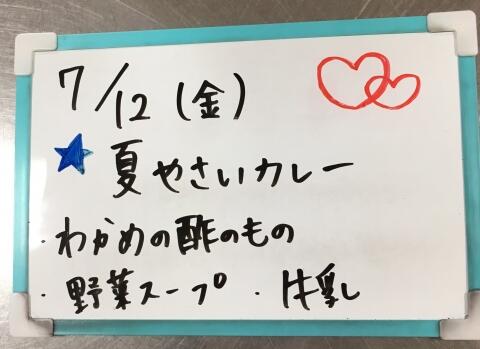 7/12(金)
★夏やさいカレー
・わかめの酢のもの
・野菜スープ ・牛乳